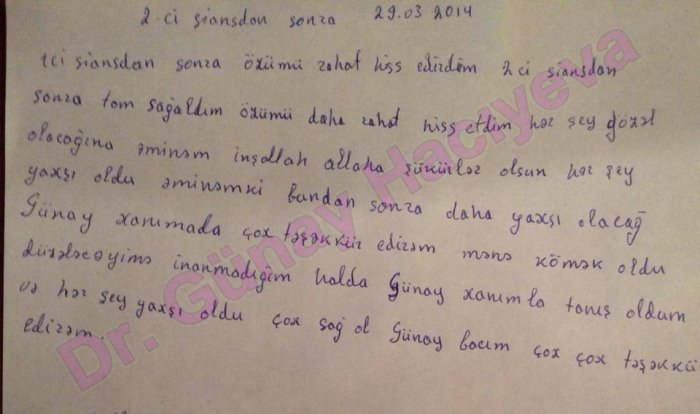 2-ci siansdan sonra 29.03 2014
1ci siansdan sonra özümü rahat hiss edirdim 2 ci siansdan
sonra tam sağaldım özümü daha rahat hiss etdim hər şey gözəl
olacağına əminəm inşallah allaha şükürlər olsun hər şey
yaxşı oldu əminəmki bundan sonra daha yaxşı olacağ
Günay xanımada çox təşəkkür edirəm mənə kömək oldu
düzələcəyimə inanmadığım halda Günay xanımla tanış oldum
və hər şey yaxşı oldu çox sağ ol Günay bacım çox çox təşəkkü
edirəm.
Dr. Günay Hacıyeva